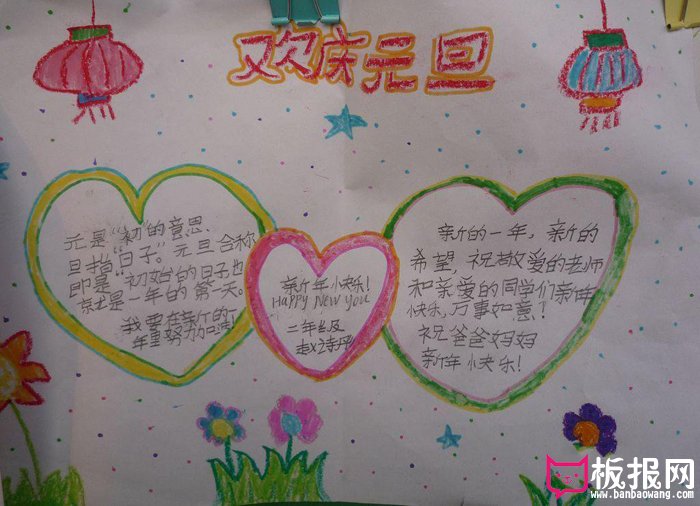 欢庆元旦
元是“初”的意思、
旦指“日子”。元旦合称
即是“初始的日子也
就是一年的第一天。
我要在新的一
年里努力口
新的一年,新的
希望,祝敬爱的老师
和亲爱的同学们新年
快乐,万事如意!
祝爸爸妈妈
新年快乐!
新年快乐!
HAPPY NEW YOU
二年级
赵诗
板报网
www.banbaowang.com